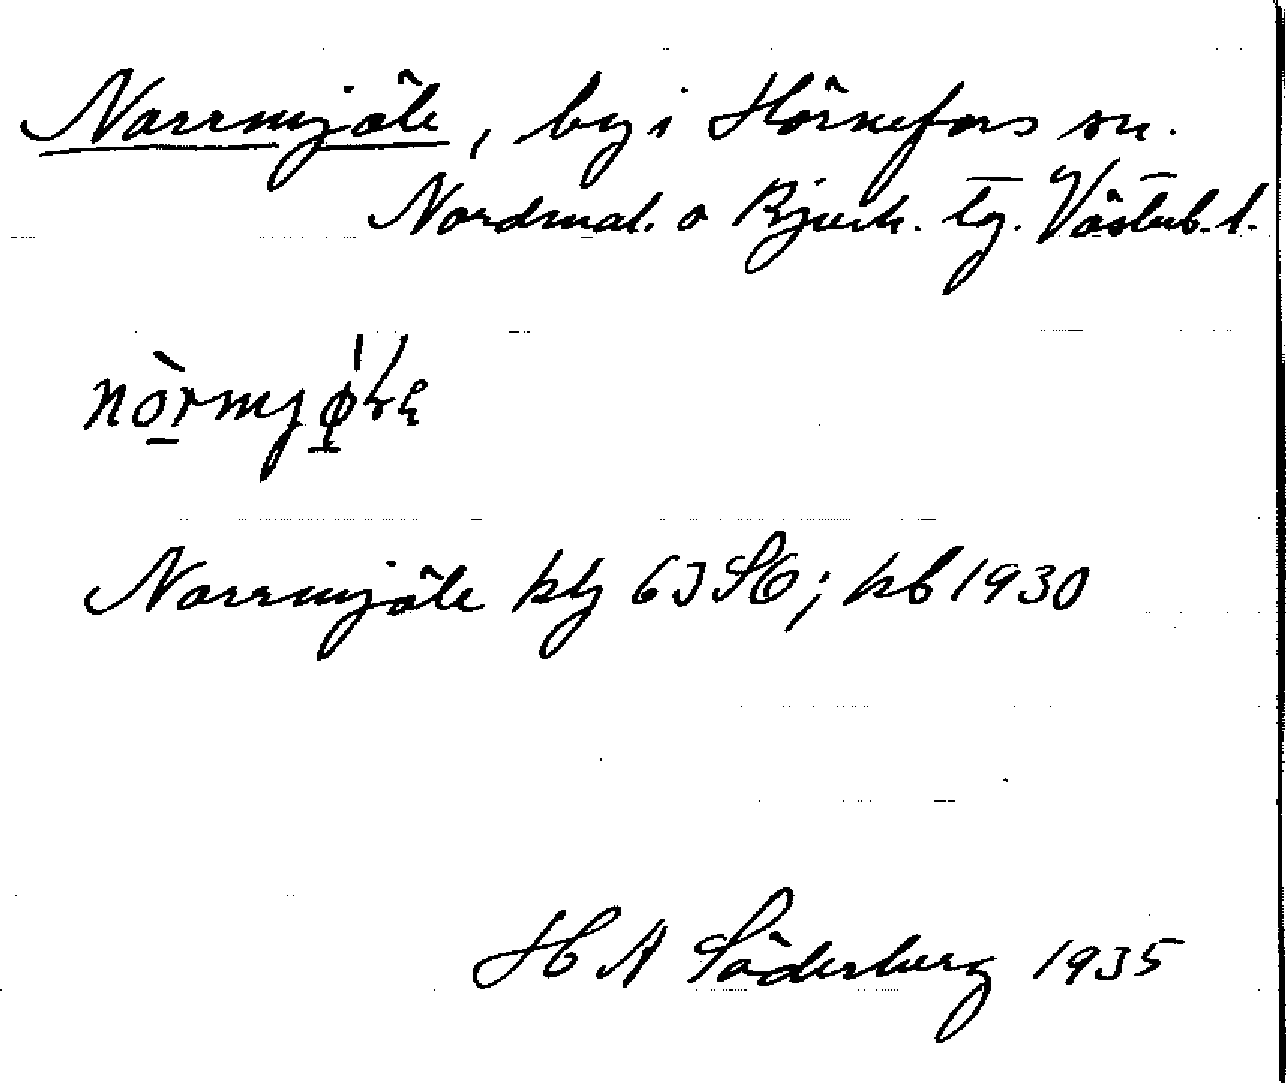 Norrmjöle, by i Hörnefors sn.
Nordmal. o Bjurh. tg. Västerb. l.
Norrmjöle ktg 63 SO; kb 1930
H A Söderberg 1935